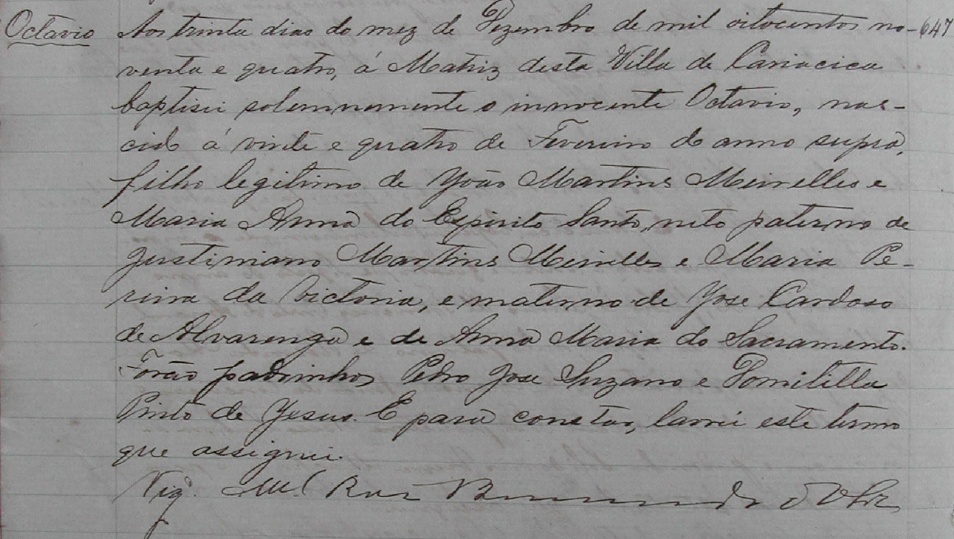 Octavio Aos trinta dias do mez de Dezembro de mil oitocentos no- 647
venta e quatro, á Matriz desta Villa de Cariacica
baptisei solemnemente o innocente Octavio, nas-
cido á vinte e quatro de Fevereiro do anno supra,
filho legitimo de João Martins Meirelles e
Maria Anna do Espirito Santo, neto paterno de
Justiniano Martins Meirelles e Maria Pe-
reira da Victoria, e materno de Jose Cardoso
de Alvarenga e de Anna Maria do Sacramento.
Forão padrinhos Pedro Jose Suzano e Domitilla
Pinto de Jesus. E para constar, lavrei este termo
que assignei.
Vigº.